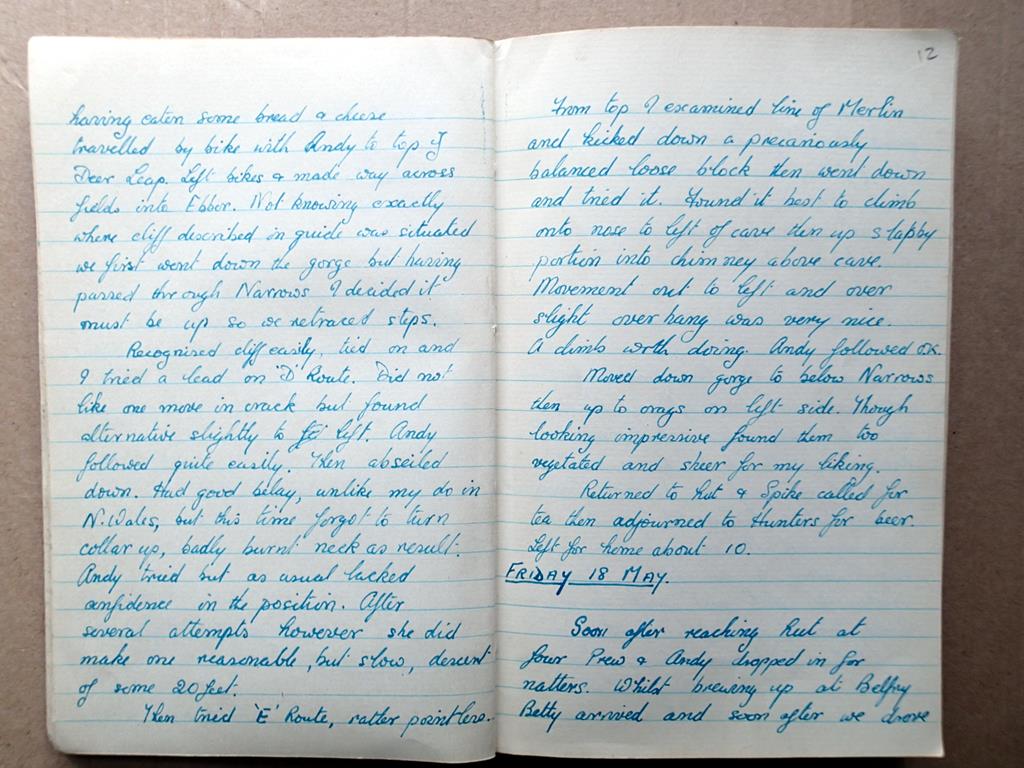 having eaten some bread & cheese
travelled by bike with Andy to top of
Deer Leap. Left bikes & made way across
fields into Ebbor. Not knowing exactly
where cliff described in guide was situated
we first went down the gorge but having
passed through Narrows I decided it
must be up so we retraced steps.
Recognised cliff easily, tied on and
I tried a lead on 'D' Route. Did not
like one move in crack but found
alternative slightly to left. Andy
followed quite easily. Then abseiled
down. Had good belay, unlike my do in
N. Wales, but this time forgot to turn
collar up, badly burnt neck as result.
Andy tried but as usual lacked
confidence in the position. After
several attempts however she did
make one reasonable, but slow, descent
of some 20 feet.
Then tried 'E' Route, rather pointless.
12
From top I examined line of Merlin
and kicked down a precariously
balanced loose block then went down
and tried it. Found it best to climb
onto nose to left of cave then up slabby
portion into chimney above cave.
Movement out to left and over
slight overhang was very nice.
A climb worth doing. Andy followed O.K.
Moved down gorge to below Narrows
then up to crags on left side. Though
looking impressive found them too
vegetated and sheer for my liking.
Returned to hut & Spike called for
tea then adjourned to Hunters for beer.
Left for home about 10.
FRIDAY 18 MAY.
Soon after reaching hut at
four Prew & Andy dropped in for
natters. Whilst brewing up at Belfry
Betty arrived and soon after we drove